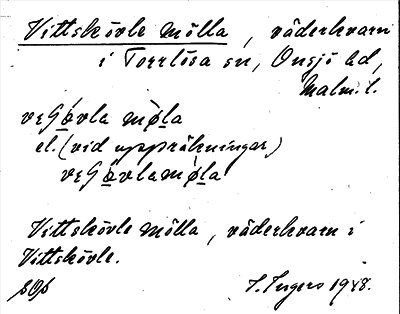 Vittskövle mölla, väderkvarn
i Torrlösa sn, Onsjö hd,
Malm. l.
vɛGövla møla
el. (vid uppräkningar)
vɛGövlamøla
Vittskövle mölla, väderkvarn i
Vittskövle.
I. Ingers 1948.